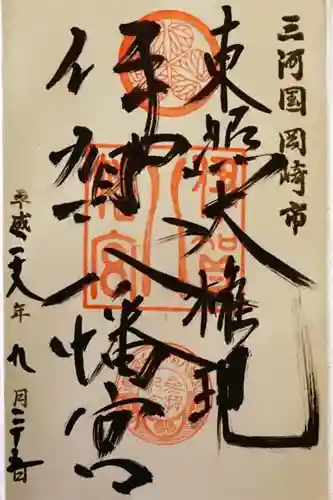 三河国岡崎市
東照大権現
伊賀八幡宮
平成二十八年九月二十五日